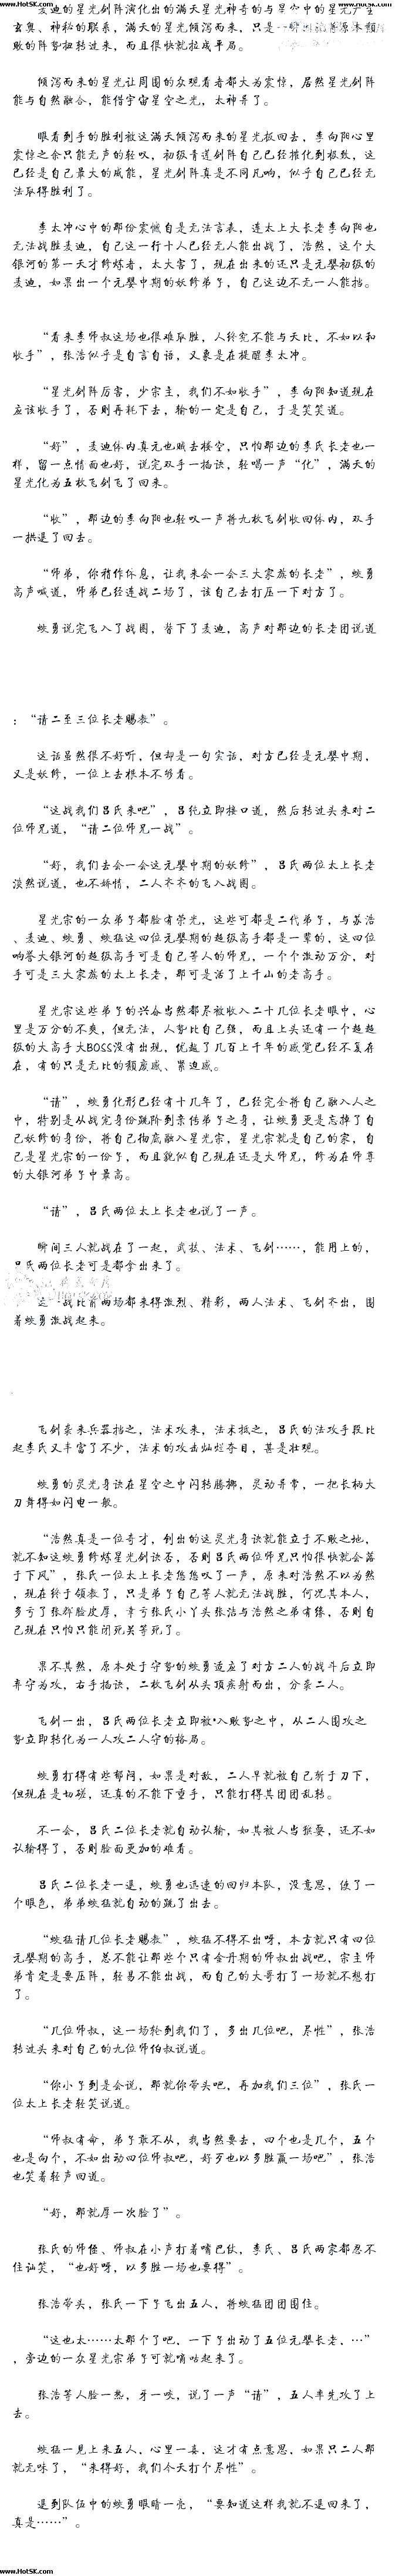 www.HotSK.com www.HotSK.com
麦迪的星光剑阵演化出的满天星光神奇的与星空中的星光产生
玄奥、神秘的联系，满天的星光倾泻而来，只是一瞬间就将原本颓
败的阵势扭转过来，而且很快就拉成平局。
倾泻而来的星光让周围的众观看者都大为震惊，居然星光剑阵
能与自然融合，能借宇宙星空之光，太神奇了。
眼看到手的胜利被这满天倾泻而来的星光扳回去，李向阳心里
震惊之余只能无声的轻叹，初级青莲剑阵自己已经推化到极致，这
已经是自己最大的威能，星光剑阵真是不同凡响，似乎自己已经无
法取得胜利了。
李太冲心中的那份震憾自是无法言表，连太上大长老李向阳也
无法战胜麦迪，自己这一行十人已经无人能出战了，浩然，这个大
银河的第一天才修炼者，太大害了，现在出来的还只是元婴初级的
麦迪，如果出一个元婴中期的妖修弟子，自己这边不无一人能挡。
“看来李师叔这场也很难取胜，人终究不能与天比，不如以和
收手”，张浩似乎是自言自语，又象是在提醒李太冲。
“星光剑阵厉害，少宗主，我们不如收手”，李向阳知道现在
应该收手了，否则再耗下去，输的一定是自己，于是笑笑道。
“好”，麦迪体内真元也贼去楼空，只怕那边的李氏长老也一
样，留一点情面也好，说完双手一掐诀，轻喝一声“化”，满天的
星光化为五枚飞剑飞了回来。
“收”，那边的李向阳也轻叹一声将九枚飞剑收回体内，双手
一拱退了回去。
“师弟，你稍作休息，让我来会一会三大家族的长老”，蛟勇
高声喊道，师弟已经连战二场了，该自己去打压一下对方了。
蛟勇说完飞入了战圈，替下了麦迪，高声对那边的长老团说道
：“请二至三位长老赐教”。
这话虽然很不好听，但却是一句实话，对方已经是元婴中期，
又是妖修，一位上去根本不够看。
“这战我们吕氏来吧”，吕纯立即接口道，然后转过头来对二
位师兄道，“请二位师兄一战”。
“好，我们去会一会这元婴中期的妖修”，吕氏两位太上长老
淡然说道，也不矫情，二人齐齐的飞入战圈。
星光宗的一众弟子都脸有荣光，这些可都是二代弟子，与苏浩
、麦迪、蛟勇、蛟猛这四位元婴期的超级高手都是一辈的，这四位
响誉大银河的超级高手可是自己等人的师兄，一个个激动万分，对
手可是三大家族的太上长老，那可是活了上千山的老高手。
星光宗这些弟子的兴奋当然都尽被收入二十几位长老眼中，心
里是万分的不爽，但无法，人势比自己强，而且上头还有一个超超
级的大高手大BOSS没有出现，优越了几百上千年的感觉已经不复存
在，有的只是无比的颓废感、紧迫感。
“请”，蛟勇化形已经有十几年了，已经完全将自己融入人之
中，特别是从战宠身份跳阶到亲传弟子之身，让蛟勇更是忘掉了自
己妖修的身份，将自己彻底融入星光宗，星光宗就是自己的家，自
己是星光宗的一份子，而且貌似自己现在还是大师兄，修为在师尊
的大银河弟子中最高。
“请”，吕氏两位太上长老也说了一声。
瞬间三人就战在了一起，武技、法术、飞剑……，能用上的，
吕氏两位长老可是都拿出来了。
这一战比前两场都来得激烈、精彩，两人法术、飞剑齐出，围
着蛟勇激战起来。
飞剑袭来兵器挡之，法术攻来，法术抵之，吕氏的法攻手段比
起李氏又丰富了不少，法术的攻击灿烂夺目，甚是壮观。
蛟勇的灵光身诀在星空之中闪转腾挪，灵动异常，一把长柄大
刀舞得如闪电一般。
“浩然真是一位奇才，创出的这灵光身诀就能立于不败之地，
就不知这蛟勇修炼星光剑诀否，否则吕氏两位师兄只怕很快就会落
于下风”，张氏一位太上长老悠悠叹了一声，原来对浩然不以为然
，现在终于领教了，只是弟子自己等人就无法战胜，何况其本人，
多亏了张群脸皮厚，幸亏张氏小丫头张洁与浩然之弟有缘，否则自
己现在只怕只能闭死关等死了。
果不其然，原本处于守势的蛟勇适应了对方二人的战斗后立即
弃守为攻，右手掐诀，二枚飞剑从头顶疾射而出，分袭二人。
飞剑一出，吕氏两位长老立即被*入败势之中，从二人围攻之
势立即转化为一人攻二人守的格局。
蛟勇打得有些郁闷，如果是对敌，二人早就被自己斩于刀下，
但现在是切磋，还真的不能下重手，只能打得其团团乱转。
不一会，吕氏二位长老就自动认输，如其被人当猴耍，还不如
认输得了，否则脸面更加的难看。
吕氏二位长老一退，蛟勇也迅速的回归本队，没意思，使了一
个眼色，弟弟蛟猛就自动的跳了出去。
“蛟猛请几位长老赐教”，蛟猛不得不出呀，本方就只有四位
元婴期的高手，总不能让那些个只有金丹期的师叔出战吧，宗主师
弟肯定是要压阵，轻易不能出战，而自己的大哥打了一场就不想打
了。
“几位师叔，这一场轮到我们了，多出几位吧，尽性”，张浩
转过头来对自己的九位师伯叔说道。
“你小子到是会说，那就你带头吧，再加我们三位”，张氏一
位太上长老轻笑说道。
“师叔有命，弟子敢不从，我当然要去，四个也是几个，五个
也是向个，不如出动四位师叔吧，好歹也以多胜赢一场吧”，张浩
也笑着轻声回道。
“好，那就厚一次脸了”。
张氏的师侄、师叔在小声打着嘴巴仗，李氏、吕氏两家都忍不
住讪笑，“也好呀，以多胜一场也要得”。
张浩带头，张氏一下子飞出五人，将蛟猛团团围住。
“这也太……太那个了吧，一下子出动了五位元婴长老，…”
，旁边的一众星光宗弟子可就嘀咕起来了。
张浩等人脸一热，牙一咬，说了一声“请”，五人率先攻了上
去。
蛟猛一见上来五人，心里一喜，这才有点意思，如果只二人那
就无味了，“来得好，我们今天打个尽性”。
退到队伍中的蛟勇眼睛一亮，“要知道这样我就不退回来了，
真是……”。
www.HotSK.com www.HotSK.com